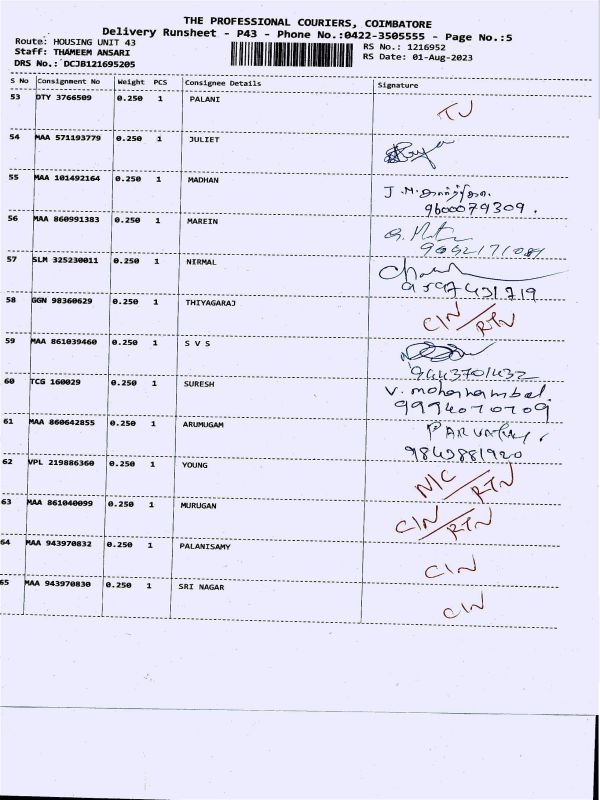 THE PROFESSIONAL COURIERS, COIMBATORE
Delivery Runsheet - P43 - Phone No.:0422-3505555 - Page No.:5
Route: HOUSING UNIT 43 RS No.: 1216952
Staff: THAMEEM ANSARI RS Date: 01-Aug-2023
DRS No.: DCJB121695205
S No Consignment No Weight PCS Consignee Details Signature
53 DTY 3766509 0.250 1 PALANI TJ
54 MAA 571193779 0.250 1 JULIET
55 MAA 101492164 0.250 1 MADHAN J.M.
9600079309.
56 MAA 860991383 0.250 1 MAREIN
57 SLM 325230011 0.250 1 NIRMAL
58 GGN 98360629 0.250 1 THIYAGARAJ CIN/RTN
59 MAA 861039460 0.250 1 S V S
9443701432
60 TCG 160029 0.250 1 SURESH V. mohanambal.
9994070709
61 MAA 860642855 0.250 1 ARUMUGAM
9843881920
62 VPL 219886360 0.250 1 YOUNG N/C/RTN
63 MAA 861040099 0.250 1 MURUGAN CIN/RTN
64 MAA 943970832 0.250 1 PALANISAMY CIN
65 MAA 943970830 0.250 1 SRI NAGAR CIN